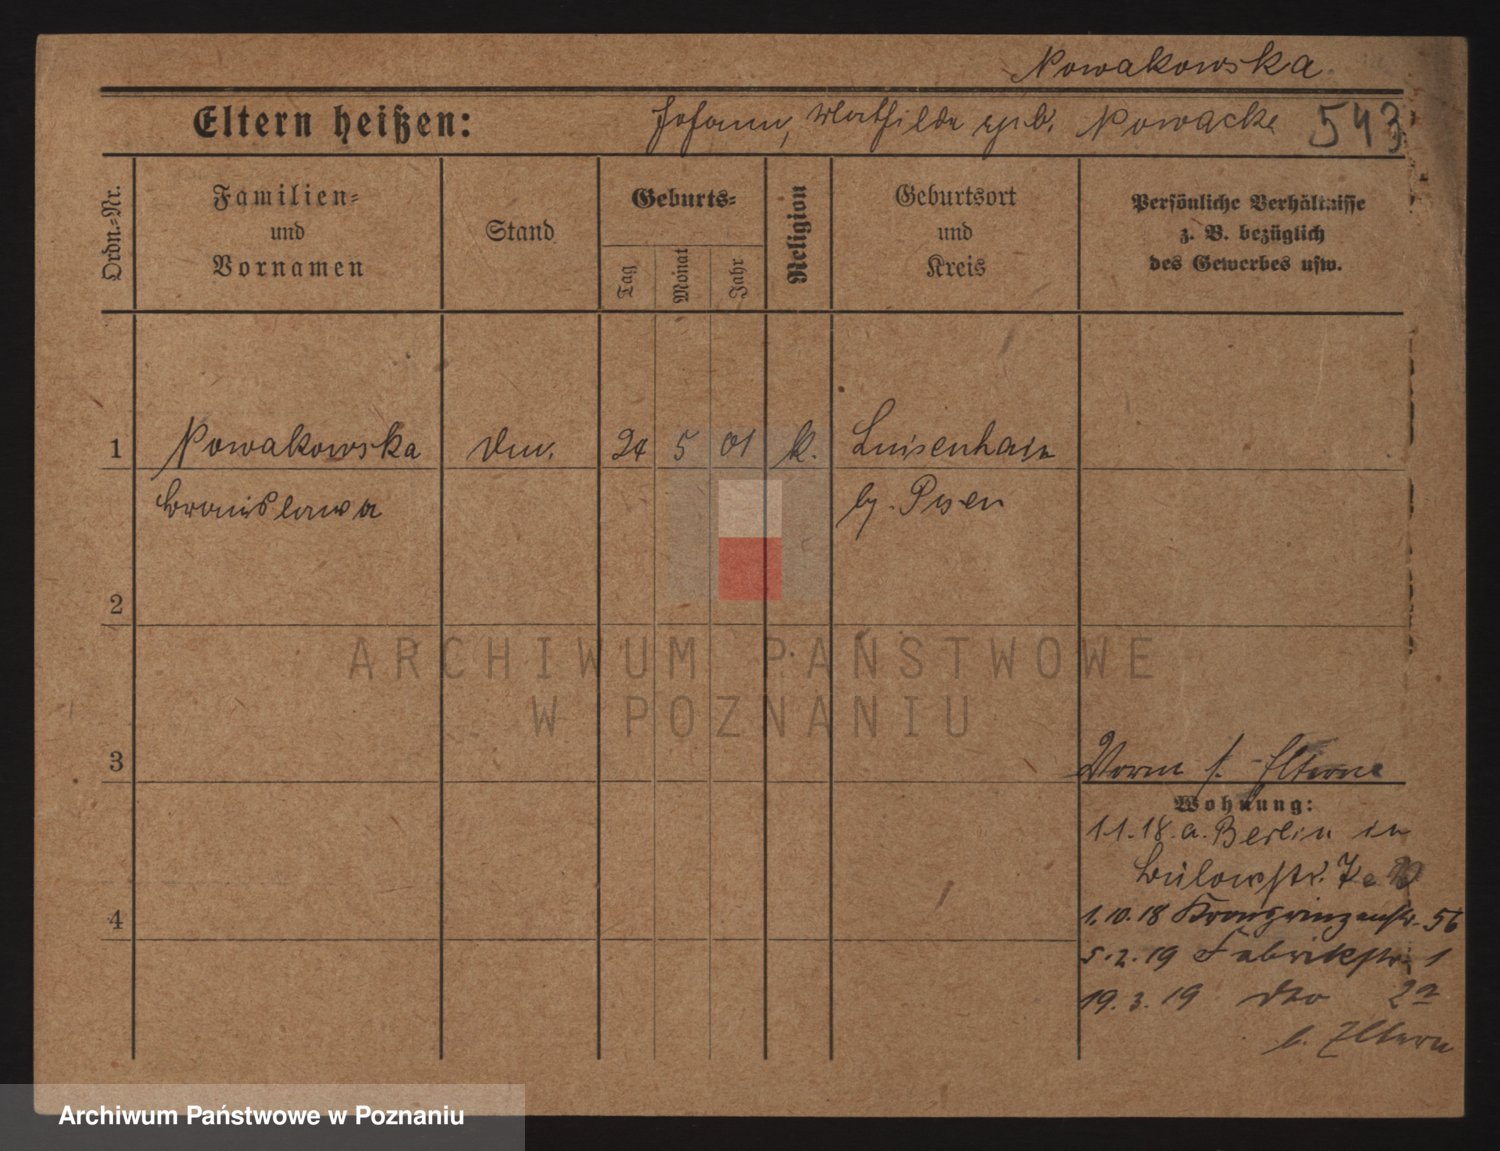 Nowakowska.
Eltern heißen: Johann, Mathilde geb. Nowacka 543
Ordn.-Nr.
Familien- und Vornamen
Stand
Geburts-
Tag
Monat
Jahr
Religion
Geburtsort und Kreis
Persönliche Verhältnisse z. B. bezüglich des Gewerbes usw.
1 Nowakowska 24 5 01 k. Luisenhain
Bronislawa b. Posen
2
3
Eltern
Wohnung:
1.1.18. a. Berlin in
Bülowstr.
1.10.18 Kronprinzenstr. 56
4
5.2.19 Fabrikstr. 1
19.3.19 dto
b. Eltern
ARCHIWUM PAŃSTWOWE
W POZNANIU
Archiwum Państwowe w Poznaniu